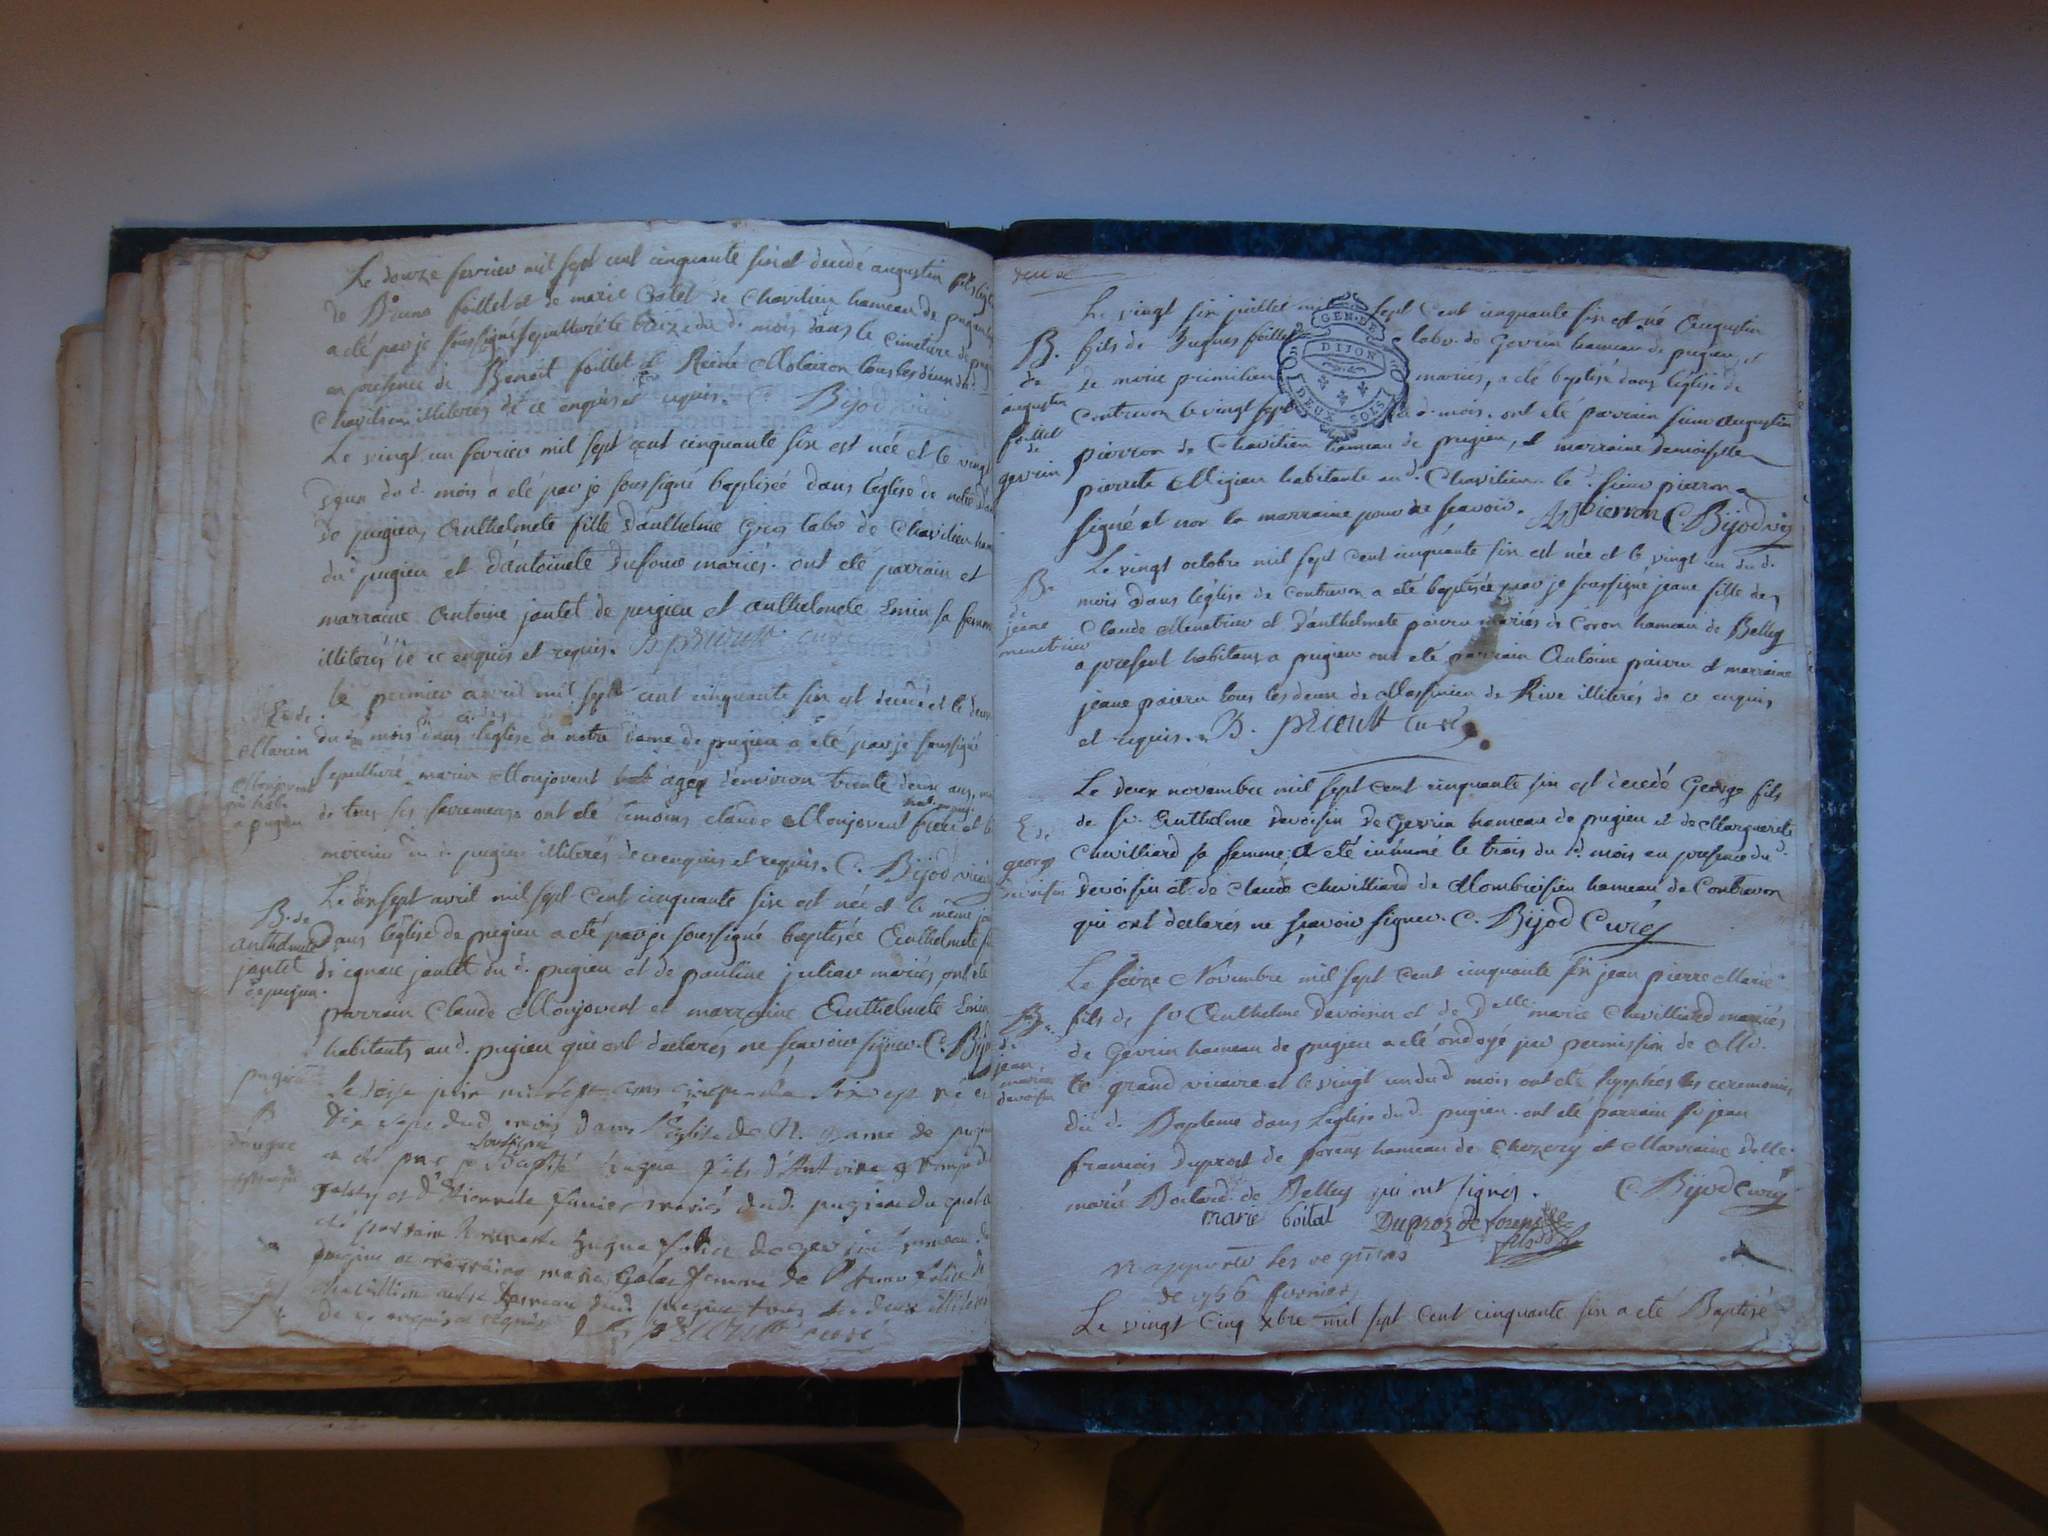 Le douze fevrier mil sept cent cinquante six est decedé augustin fils
de Bruno foillet et de marie Golet de Chavilieu hameau de pugieu
a eté par je soussigné sepulturé le treize du d. mois dans le cimetiere de
en presence de Benoit foillet et Reiné Molliron tous les deux dud.
Chavilieu illiterés de ce enquis et requis. C. Bijod
Le vingt un fevrier mil sept cent cinquante six est née et le vingt
du d. mois a eté par je soussigné baptisée dans l'église de notre
de pugieu Anthelmete fille d'anthelme Gros labr de Chavilieu
du d. pugieu et d'antoinete Dufour mariés. ont eté parrain et
marraine Antoine jantet de pugieu et anthelmete Emin sa femme
illiterés de ce enquis et requis. curé
le premier avril mil sept cent cinquante six est decedé et le deux
du d. mois dans l'eglise de notre Dame de pugieu a eté par je soussigné
Marin
sepulturé marin Monjovent agé d'environ trente deux ans,
Monjovent
a pugieu
de tous ses sacremens ont eté temoins claude Monjovent frere et
du d. pugieu illiterés de ce enquis et requis. C. Bijod
Le dix sept avril mil sept cent cinquante six est née et le même
B. de
anthelmete
dans l'église de pugieu a eté par je soussigné baptisée Anthelmete
jantet
de pugieu
d'ignace jantet du d. pugieu et de pauline juliav mariés, ont eté
parrain Claude Monjovent et marraine Anthelmete Emin
habitants au d. pugieu qui ont declarés ne scavoir signer. C. Bijod
pugieu
Le seise juin mil sept cens cinquante six est né et
B
Dix sept dud. mois dans l'Eglise de N. Dame de pugieu
d'hugue
a eté par je soussigné Baptisé hugue fils d'Antoine
et d'Etiennete mariés dud. pugieu duquel
eté parrain hugue de gevrin hameau de
pugieu et marraine marie Golet femme de
chavillieu autre hameau dud. pugieu tous les deux illiteres
de ce enquis et requis curé
Le vingt six juillet mil sept cent cinquante six est né Augustin
B.
de
augustin
foillet
de
gevrin
fils de Hugues foillet labr. de Gevrin hameau de pugieu, et
de marie primilieu mariés, a eté baptisé dans l'église de
Contrevoz le vingt sept du d. mois. ont eté parrain sieur augustin
pierron de Chavilieu hameau de pugieu, et marraine demoiselle
pierrete Migieu habitante au d. Chavilieu le d. sieur pierron a
signé et non la marraine pour ne scavoir. Pierron C Bijod
GEN. DE
DIJON
DEUX SOLS
Le vingt octobre mil sept cent cinquante six est née et le vingt un du d.
Be
de
jeane
menetrier
mois dans l'église de Contrevoz a eté baptisée par je soussigné jeane fille de
Claude Menetrier et d'anthelmete poivru mariés de Coron hameau de Belley
a present habitans a pugieu ont eté parrain Antoine poivru et marraine
jeane poivru tous les deux de Massinieu de Rive illiterés de ce enquis
et requis. curé
Le deux novembre mil sept cent cinquante six est decedé George fils
E de
george
devoisin
de sr. Anthelme Devoisin de Gevrin hameau de pugieu et de Marguerite
Chevilliard sa femme; a eté inhumé le trois du d. mois en presence du d.
Devoisin et de Claude Chevilliard de Mombreisieu hameau de Contrevoz
qui ont declarés ne scavoir signer. C. Bijod Curé
Le seize Novembre mil sept cent cinquante six jean pierre Marie
B.
de
jean
marie
devoisin
fils de sr Anthelme Devoisin et de Delle marie Chevilliard mariés
de Gevrin hameau de pugieu a eté ondoyé par permission de Mr.
le grand vicaire et le vingt un du d. mois ont eté supplées les ceremonies
du d. Bapteme dans l'église du d. pugieu. ont eté parrain sr jean
francois Duprost de forens hameau de Chezery et Marraine Delle.
marie Boitard de Belley qui ont signés. C. Bijod Curé
marie boital Duproz de forens fils
rapporté les registres
de 1756
Le vingt Cinq xbre mil sept cent cinquante six a eté Baptisé